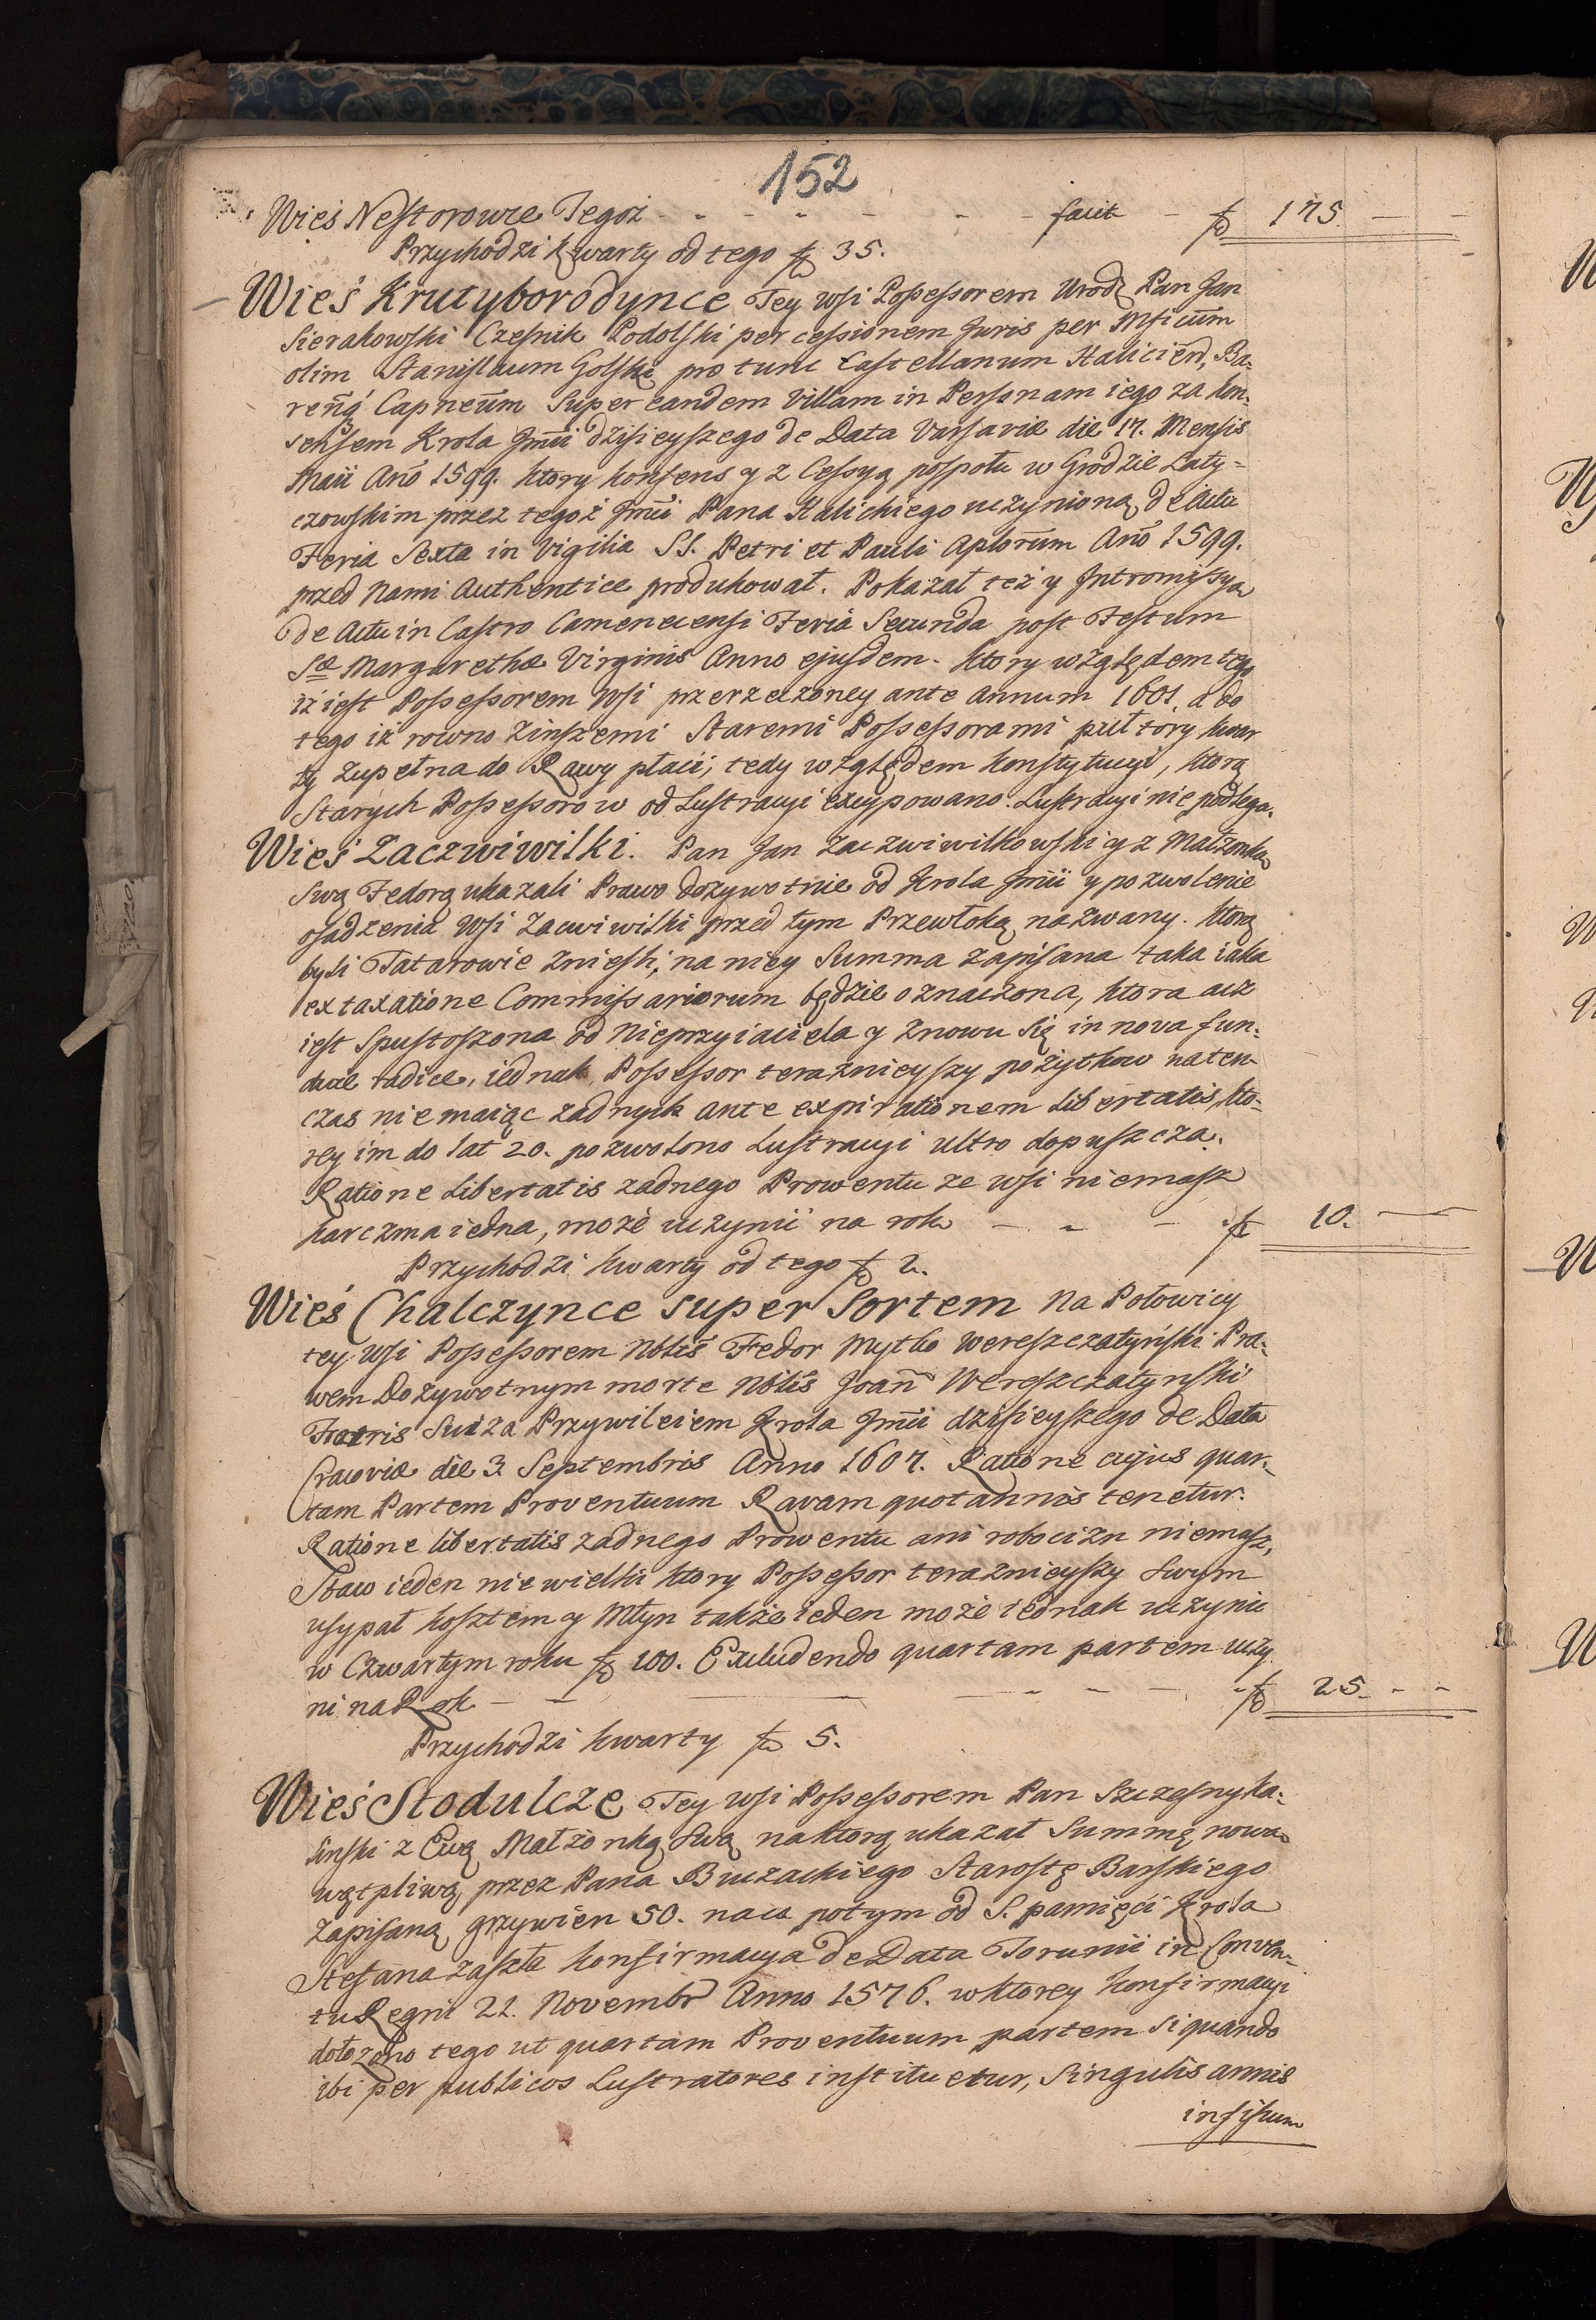 152
Wieś Nestorowce Tegoż - - - - - facit - fl 175 - -
Przychodzi kwarty od tego fl 35.
Wieś Krutyborodynce Tey wsi Possessorem Urodz Pan Jan
Sierakowski Czesnik Podolski per cessionem Juris per Mficum
olim Stanislaum Golski pro tunc Castellanum Halicien, Ba-
reng Capneum super eandem Villam in Personam iego za kon-
sensem Krola Jmci dzisieyszego de Data Varsaviæ die 17. Mensis
Maii Ano 1599. ktory konsens y z Cessyą pospołu w Grodzie Laty-
czowskim przez tegoż Jmci Pana Halickiego uczynioną de actu
Feria Sexta in Vigilia SS. Petri et Pauli Aplorum Ano 1599.
przed Nami Authentice produkował. Pokazał też y Intromissyą
de actu in Castro Camenecensi Feria Secunda post Festum
Sæ Margarethæ Virginis Anno ejusdem. ktory względem tego
iż iest Possessorem wsi przerzeczoney ante annum 1601. a do
tego iż rowno z inszemi Staremi Possessorami pułtory kwar
ty zupełna do Rawy płaci, tedy względem Konstytucyi, ktorą
Starych Possessorow od Lustracyi excypowano. Lustracyi nie podlega.
Wieś Zaczwiwilki. Pan Jan Zaczwiwilkowski y z Małzonką
Swą Fedorą ukazali Prawo dozywotnie od Krola Jmci y pozwolenie
osadzenia Wsi Zacwiwilki przed tym Przewłoką nazwany. ktorą
byli Tatarowie znieśli, na niey Summa zapisana taka iaka
ex taxatione Commissariorum będzie oznaczona, ktora acz
iest Spustoszona od Nieprzyiaciela y znowu się in nova fun-
duie radice, iednak Possessor teraznieyszy pożytkow naten
czas niemaiąc zadnych ante expirationem Libertatis, kto-
rey im do lat 20. pozwolono Lustracyi ultro dopuszcza.
Ratione Libertatis zadnego Prowentu ze wsi niemasz
karczma iedna, może uczynić na rok - - - fl 10. -
Przychodzi kwarty od tego fl 2.
Wieś Chalczynce super Sortem Na Połowicy
tey wsi Possessorem Nblis Fedor Mytko Wereszczatyński Pra-
wem Dożywotnym morte Nblis Joan Wereszczatynski
Fratris Sui za Przywileiem Krola Jmci dzisieyszego de Data
Cracoviæ die 3. Septembris Anno 1607. Ratione cujus quar-
tam Partem Proventuum Ravam quotannis tenetur.
Ratione libertatis zadnego Prowentu ani robocizn niemasz,
Staw ieden niewielki ktory Possessor teraznieyszy Swym
usypał kosztem y Młyn także ieden może iednak uczynic
w Czwartym roku fl 100. Excludendo quartam partem uczy
ni na Rok - - - - - - fl 25. - -
Przychodzi kwarty fl 5.
Wieś Stodulcze Tey wsi Possessorem Pan Szczesny Ka-
sinski z Ewą Małżonką Swą na ktorą ukazał Summę nową
wątpliwą, przez Pana Buczackiego Starostę Barskiego
zapisaną grzywien 50. naco potym od S. pamięci Krola
Stefana zaszła konfirmacya de Data Torunii in Conven-
tu Regni 22. Novembr Anno 1576. w ktorey konfirmacyi
dołozono tego ut quartam Proventuum partem si quando
ibi per publicos Lustratores instituetur, Singulis annis
in fiscum